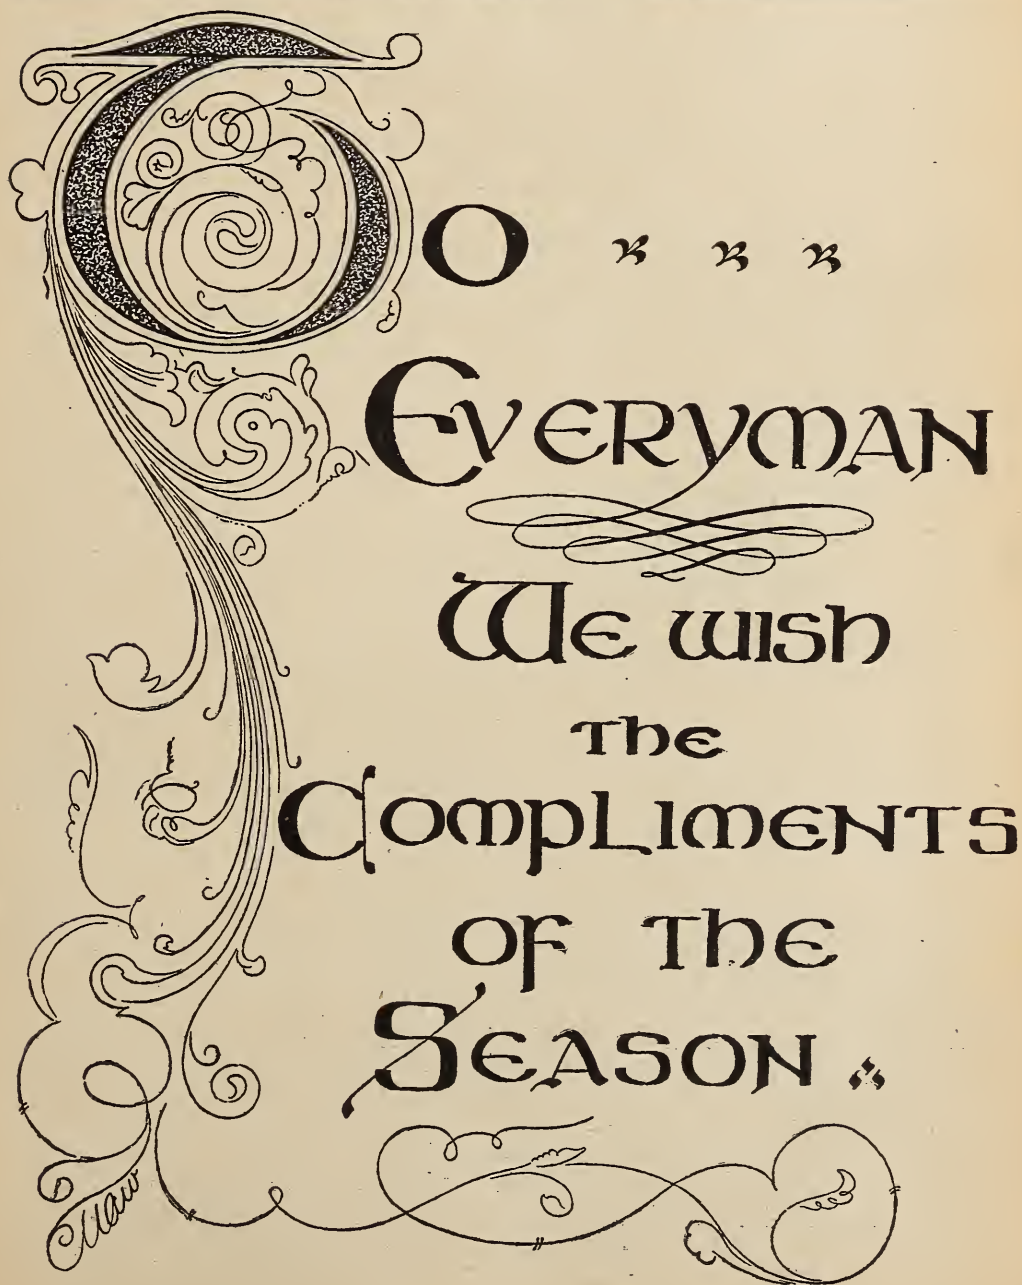 To
Everyman
We wish
the
Compliments
of the
Season
Maw